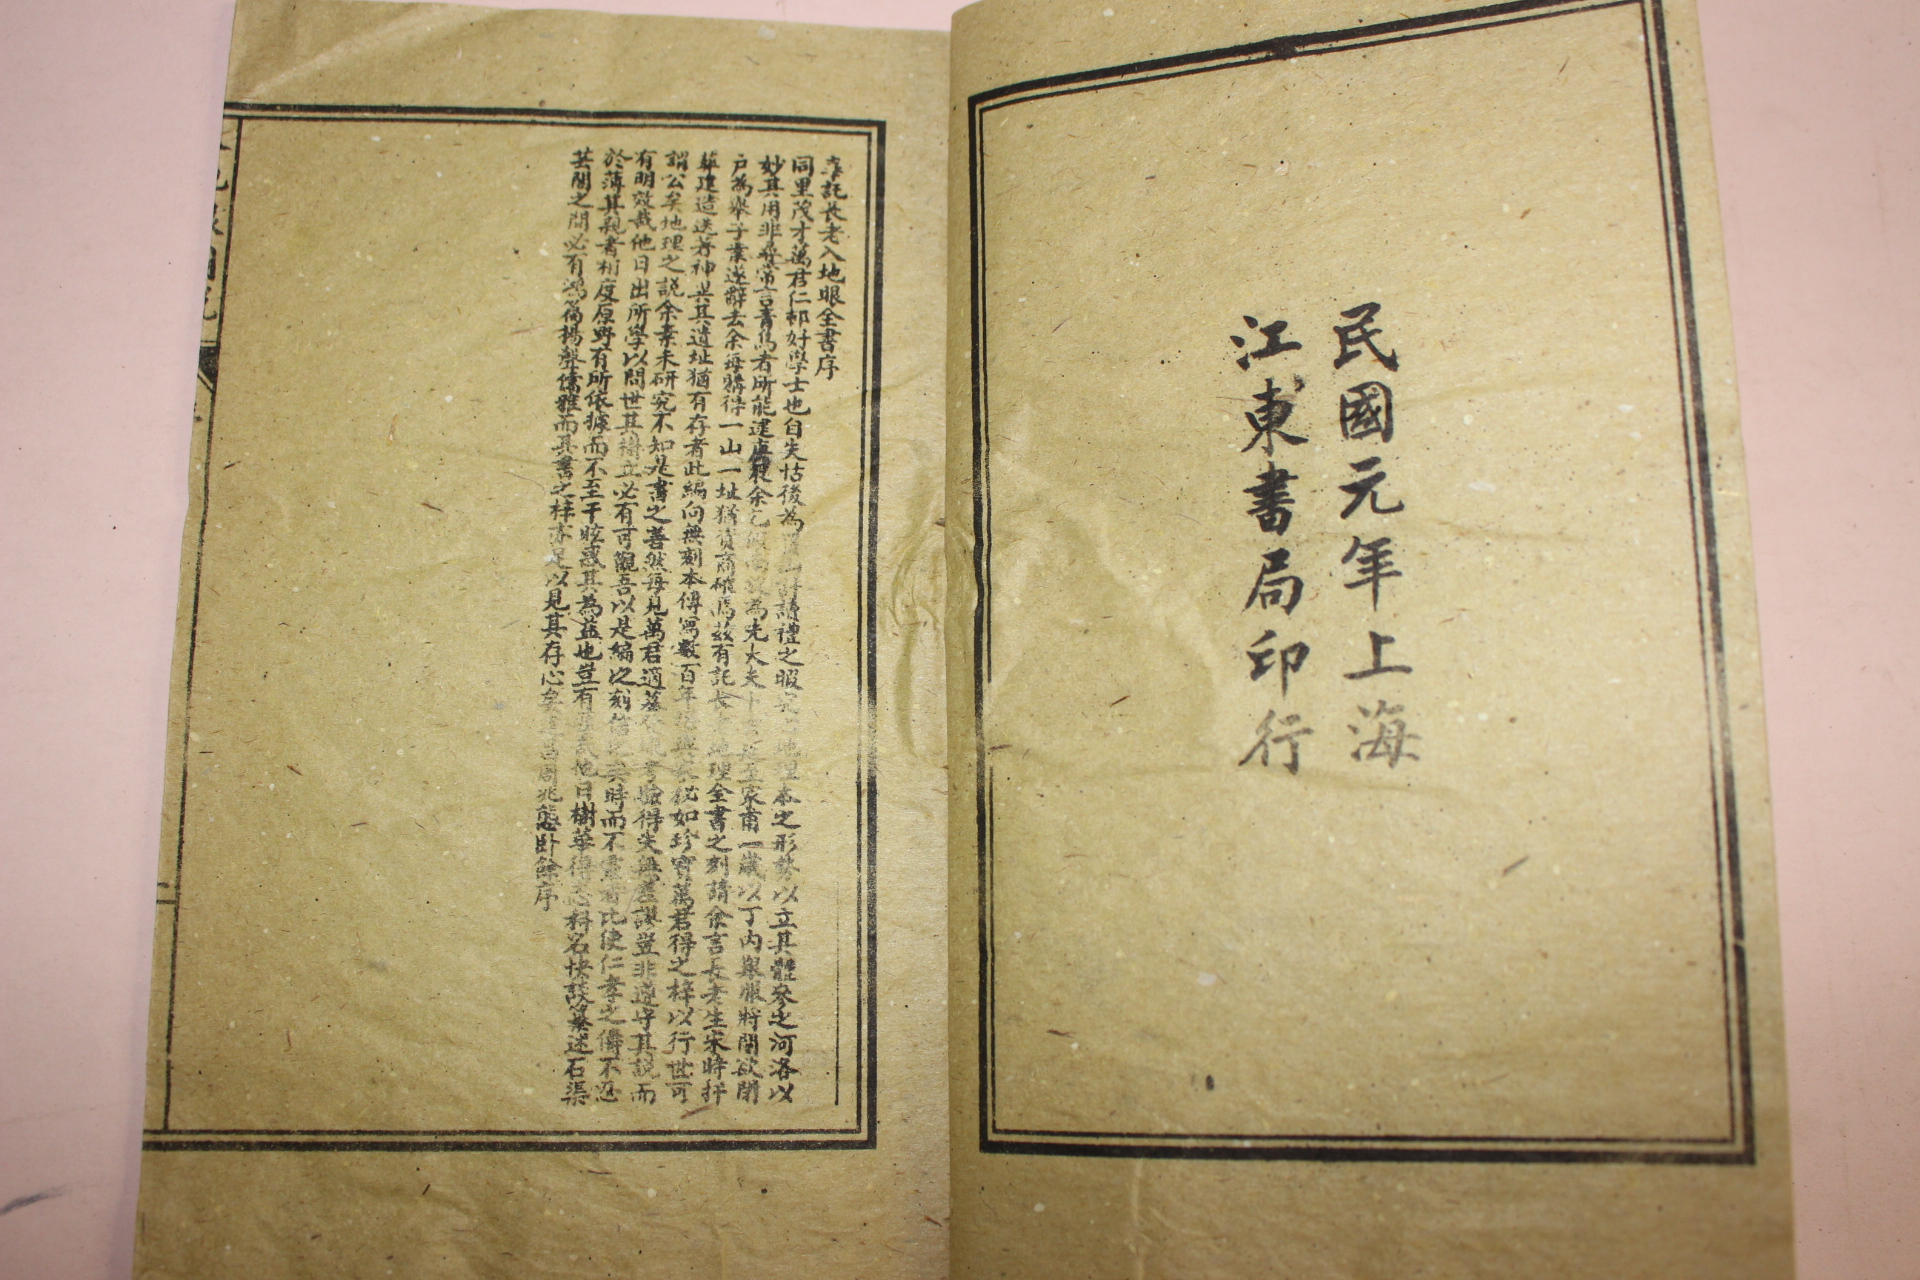 民國元年上海
江東書局印行
託長老入地眼全書序
同里茂才萬君仁邨好學士也自失怙後為讀禮之暇地理本之形勢以立其體參之河洛以
妙其用非尋常言青烏者所能逮余為先大夫家甫一歲以丁內艱服將闋欲閉
戶為舉子業遂辭去余每購得一山一址猶商確焉茲有託長理全書之刻請余言長老生宋時扞
葬建造迭著神其遺址猶有存者此編向無刻本傳寫數百年秘如珍寶萬君得之梓以行世可
謂公矣地理之說余素未研究不知是書之善然每見萬君適考驗得失無差謬豈非遵守其說而
有明效哉他日出所學以問世其樹立必有可觀吾以是編之刻時而不比使仁孝之儔不忍
於薄其親者相度原野有所依據而不至于眩惑其為益也豈有他日樹華得科名快談纂述石渠
芸閣之間必有鴻篇揚聲儒雅而其書之梓亦足以見其存心矣周兆熊卧餘序